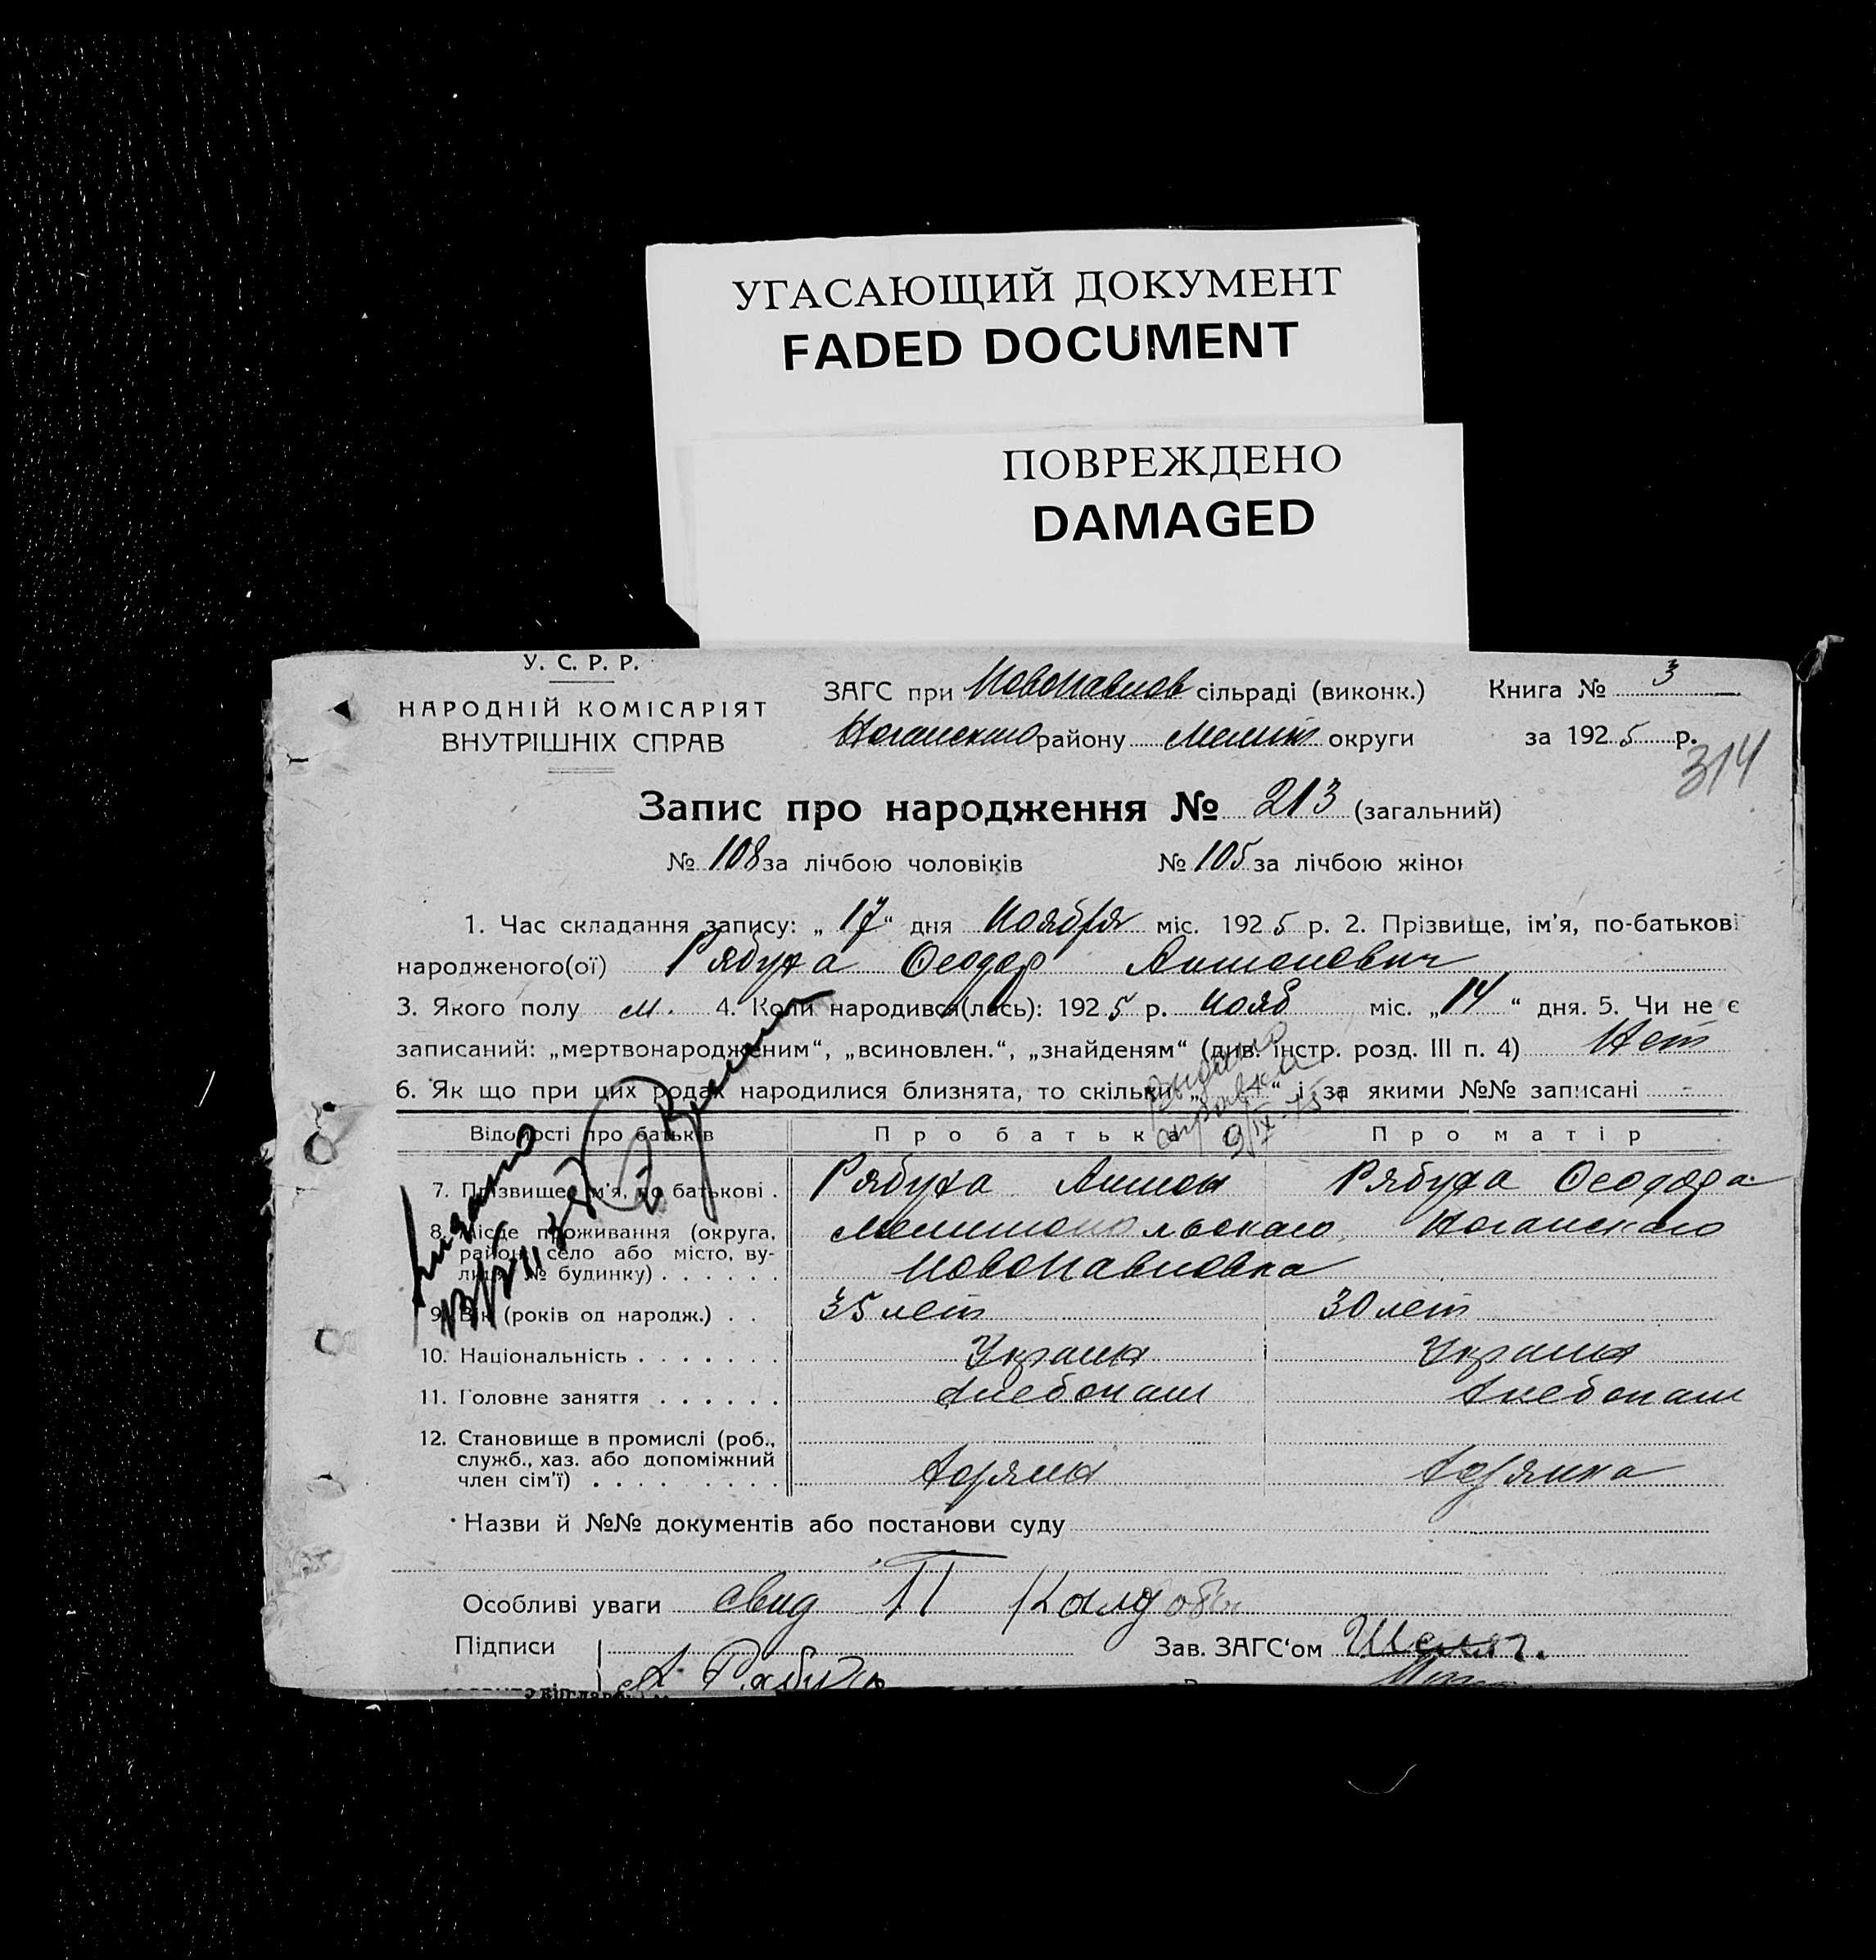 УГАСАЮЩИЙ ДОКУМЕНТ
FADED DOCUMENT
ПОВРЕЖДЕНО
DAMAGED
У. С. Р. Р.
НАРОДНІЙ КОМІСАРІЯТ
ВНУТРІШНІХ СПРАВ
ЗАГС при Новопавлов сільраді (виконк.)
Книга № 3
району Мелит округи
за 1925 р.
314
Запис про народження № 213 (загальний)
№ 108 за лічбою чоловіків № 105 за лічбою жінок
1. Час складання запису: „17“ дня Ноября міс. 1925 р. 2. Прізвище, ім'я, по-батькові
народженого(ої) Рябуха Феодор Антонович
3. Якого полу м. 4. Коли народився(лась): 1925 р. нояб міс. „14“ дня. 5. Чи не є
записаний: „мертвонародженим“, „всиновлен.“, „знайденям“ (див. інстр. розд. III п. 4) Нет
6. Як що при цих родах народилися близнята, то скільки „ “ і за якими №№ записані -
Выдана
справка
9/IX-75
Відомості про батьків Про батька Про матір
7. Прізвище, ім'я, по батькові . Рябуха Антон Рябуха Феодора
8. Місце проживання (округа,
район, село або місто, ву-
лиця, № будинку) . . . . . .
Мелитопольского, Ногайского
Новопавловка
9. Вік (років од народж.) . . 35 лет 30 лет
10. Національність . . . . . . . Украин Украин
11. Головне заняття . . . . . . Хлебопаш Хлебопаш
12. Становище в промислі (роб.,
служб., хаз. або допоміжний
член сім'ї) . . . . . . . . .
Назви й №№ документів або постанови суду
Особливі уваги свид
Підписи
Зав. ЗАГС'ом
А. Рябуха